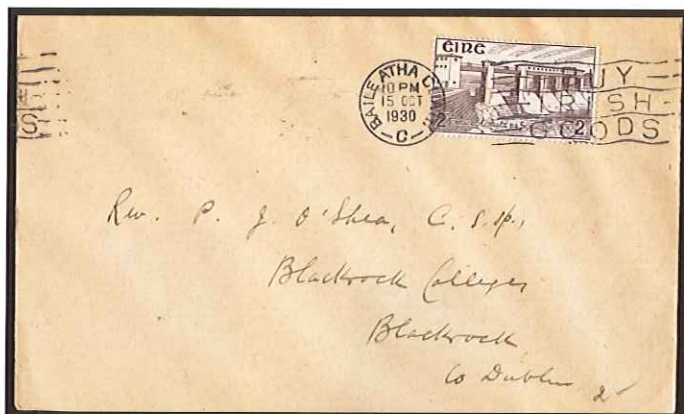 ÉIRE
BAILE ATHA CLIATH
10 PM
15 OCT
1930
C
BUY
IRISH
GOODS
2 2
Rev. P. J. O'Shea, C.S.Sp.,
Blackrock College,
Blackrock
Co Dublin